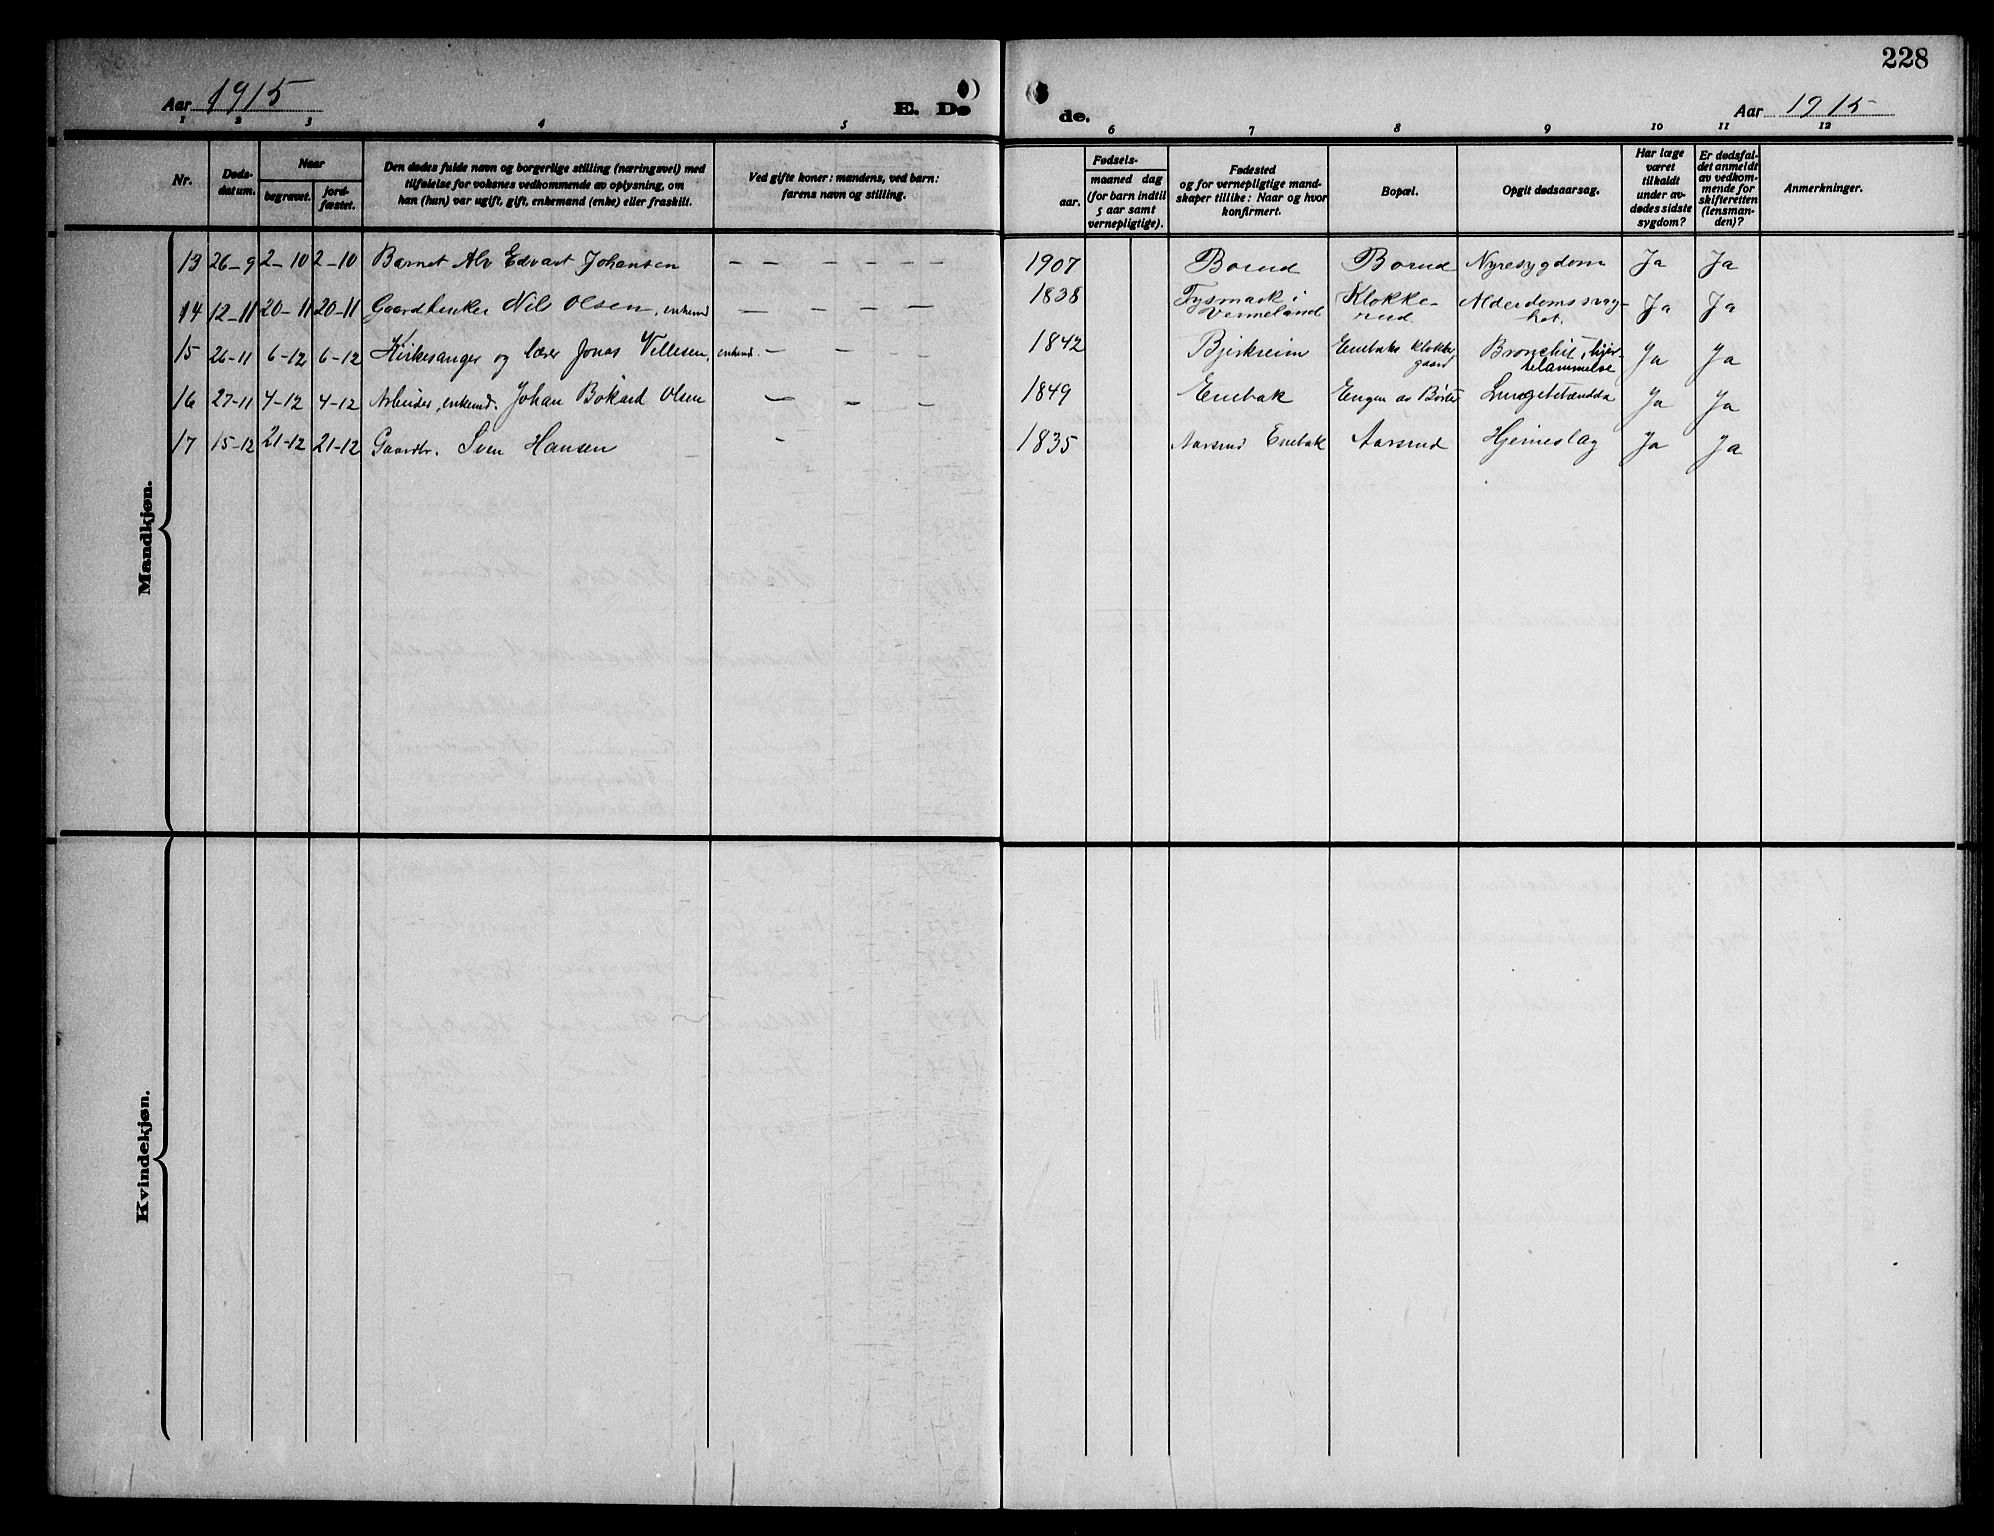 228
Aar 1915
E. Dø
de.
Aar 1915
1 2 3 4 5 6 7 8 9 10 11 12
Nr.
Døds-
datum.
Naar
begravet.
jord-
fæstet.
Den dødes fulde navn og borgerlige stilling (næringsvei) med
tilføielse for voksnes vedkommende av oplysning, om
han (hun) var ugift, gift, enkemand (enke) eller fraskilt.
Ved gifte koner: mandens, ved barn:
farens navn og stilling.
Fødsels-
aar.
maaned dag
(for barn indtil
5 aar samt
vernepligtige).
Fødested
og for vernepligtige mand-
skaper tillike: Naar og hvor
konfirmert.
Bopæl.
Opgit dødsaarsag.
Har læge
været
tilkaldt
under av-
dødes sidste
sygdom?
Er dødsfal-
det anmeldt
av vedkom-
mende for
skifteretten
(lensman-
den)?
Anmerkninger.
Mandkjøn.
13 26-9 2-10 2-10 Barnet Alv Edvart Johansen — — — — — — 1907 Borud Borud Nyresygdom Ja Ja
14 12-11 20-11 20-11 Gaardbruker Nils Olsen, enkemd — — — — 1838 Tysmark i Vermeland Klokke-rud Alderdomssvag-het. Ja Ja
15 26-11 6-12 6-12 Kirkesanger og lærer Jonas Villesen, enkemd. — — — — 1842 Bjerkreim Enebaks Klokkergaard Bronchit, hjertelammelse Ja Ja
16 27-11 4-12 4-12 Arbeider, enkemd. Johan Bokard Olsen — — — 1849 Enebak Engen av Børter Lungebetændda Ja Ja
17 15-12 21-12 21-12 Gaardbr. Sven Hansen - 1835 Aarsrud Enebak Aarsrud Hjerneslag Ja Ja
Kvindekjøn.